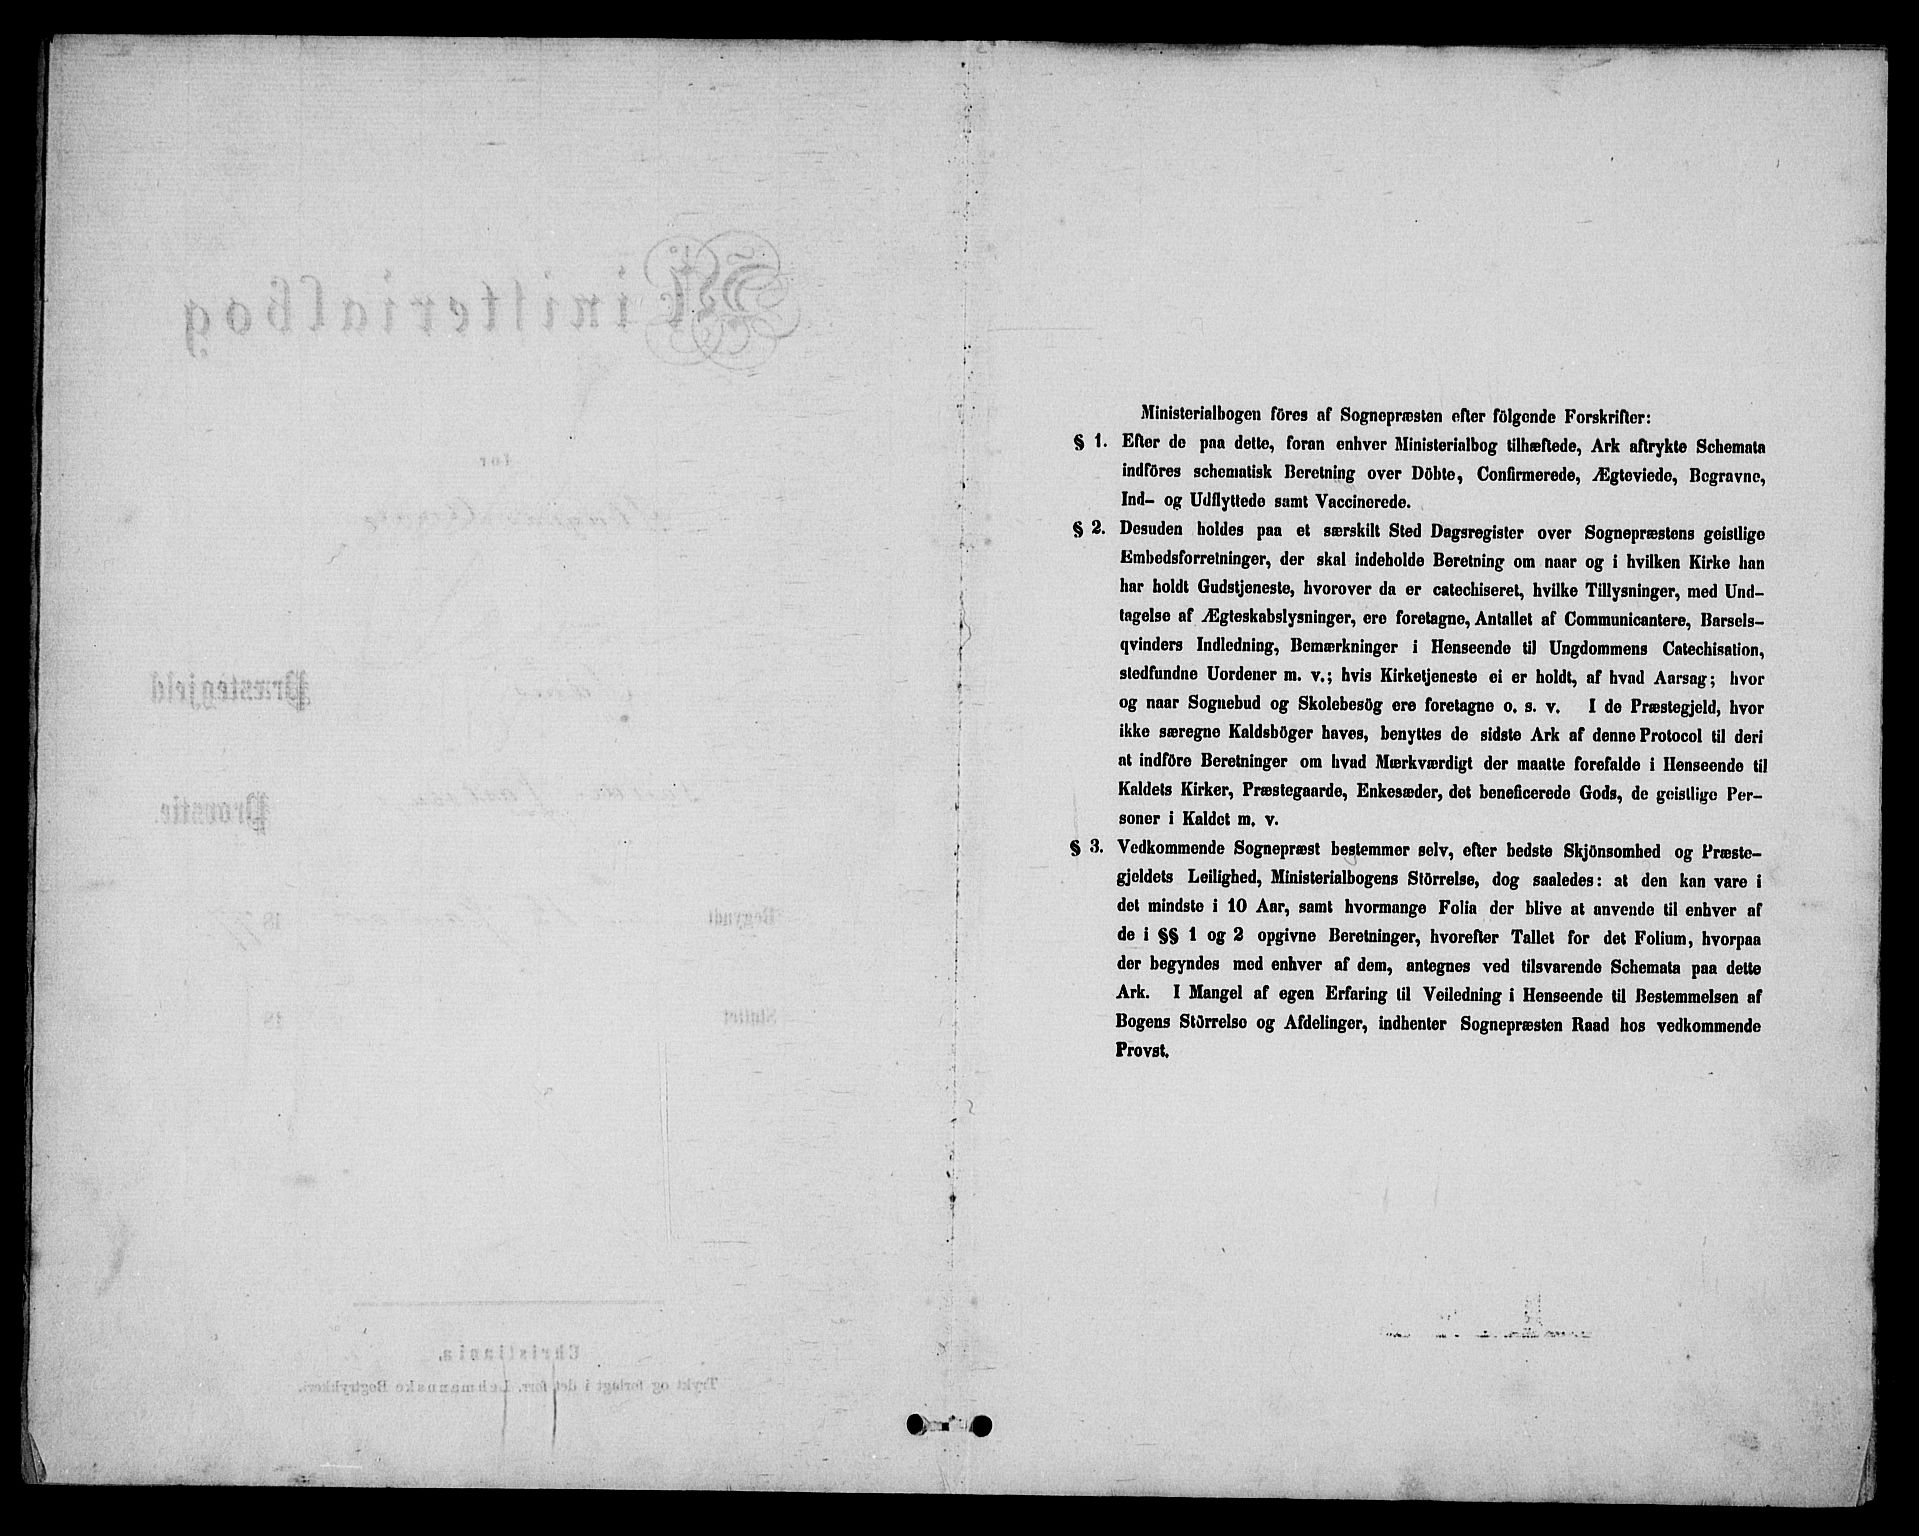 Ministerialbog
for
Præstegjeld
Provstie.
Begyndt 18
Sluttet 18
Christiania.
Trykt og forlagt i det forr. Lehmannske Bogtrykkeri.
Ministerialbogen föres af Sognepræsten efter fölgende Forskrifter:
§ 1. Efter de paa dette, foran enhver Ministerialbog tilhæftede, Ark aftrykte Schemata
indföres schematisk Beretning over Döbte, Confirmerede, Ægteviede, Begravne,
Ind- og Udflyttede samt Vaccinerede.
§ 2. Desuden holdes paa et særskilt Sted Dagsregister over Sognepræstens geistlige
Embedsforretninger, der skal indeholde Beretning om naar og i hvilken Kirke han
har holdt Gudstjeneste, hvorover da er catechiseret, hvilke Tillysninger, med Und-
tagelse af Ægteskabslysninger, ere foretagne, Antallet af Communicantere, Barsels-
qvinders Indledning, Bemærkninger i Henseende til Ungdommens Catechisation,
stedfundne Uordener m. v.; hvis Kirketjeneste ei er holdt, af hvad Aarsag; hvor
og naar Sognebud og Skolebesög ere foretagne o. s. v. I de Præstegjeld, hvor
ikke særegne Kaldsböger haves, benyttes de sidste Ark af denne Protocol til deri
at indföre Beretninger om hvad Mærkværdigt der maatte forefalde i Henseende til
Kaldets Kirker, Præstegaarde, Enkesæder, det beneficerede Gods, de geistlige Per-
soner i Kaldet m. v.
§ 3. Vedkommende Sognepræst bestemmer selv, efter bedste Skjönsomhed og Præste-
gjeldets Leilighed, Ministerialbogens Störrelse, dog saaledes: at den kan vare i
det mindste i 10 Aar, samt hvormange Folia der blive at anvende til enhver af
de i §§ 1 og 2 opgivne Beretninger, hvorefter Tallet for det Folium, hvorpaa
der begyndes med enhver af dem, antegnes ved tilsvarende Schemata paa dette
Ark. I Mangel af egen Erfaring til Veiledning i Henseende til Bestemmelsen af
Bogens Störrelse og Afdelinger, indhenter Sognepræsten Raad hos vedkommende
Provst.